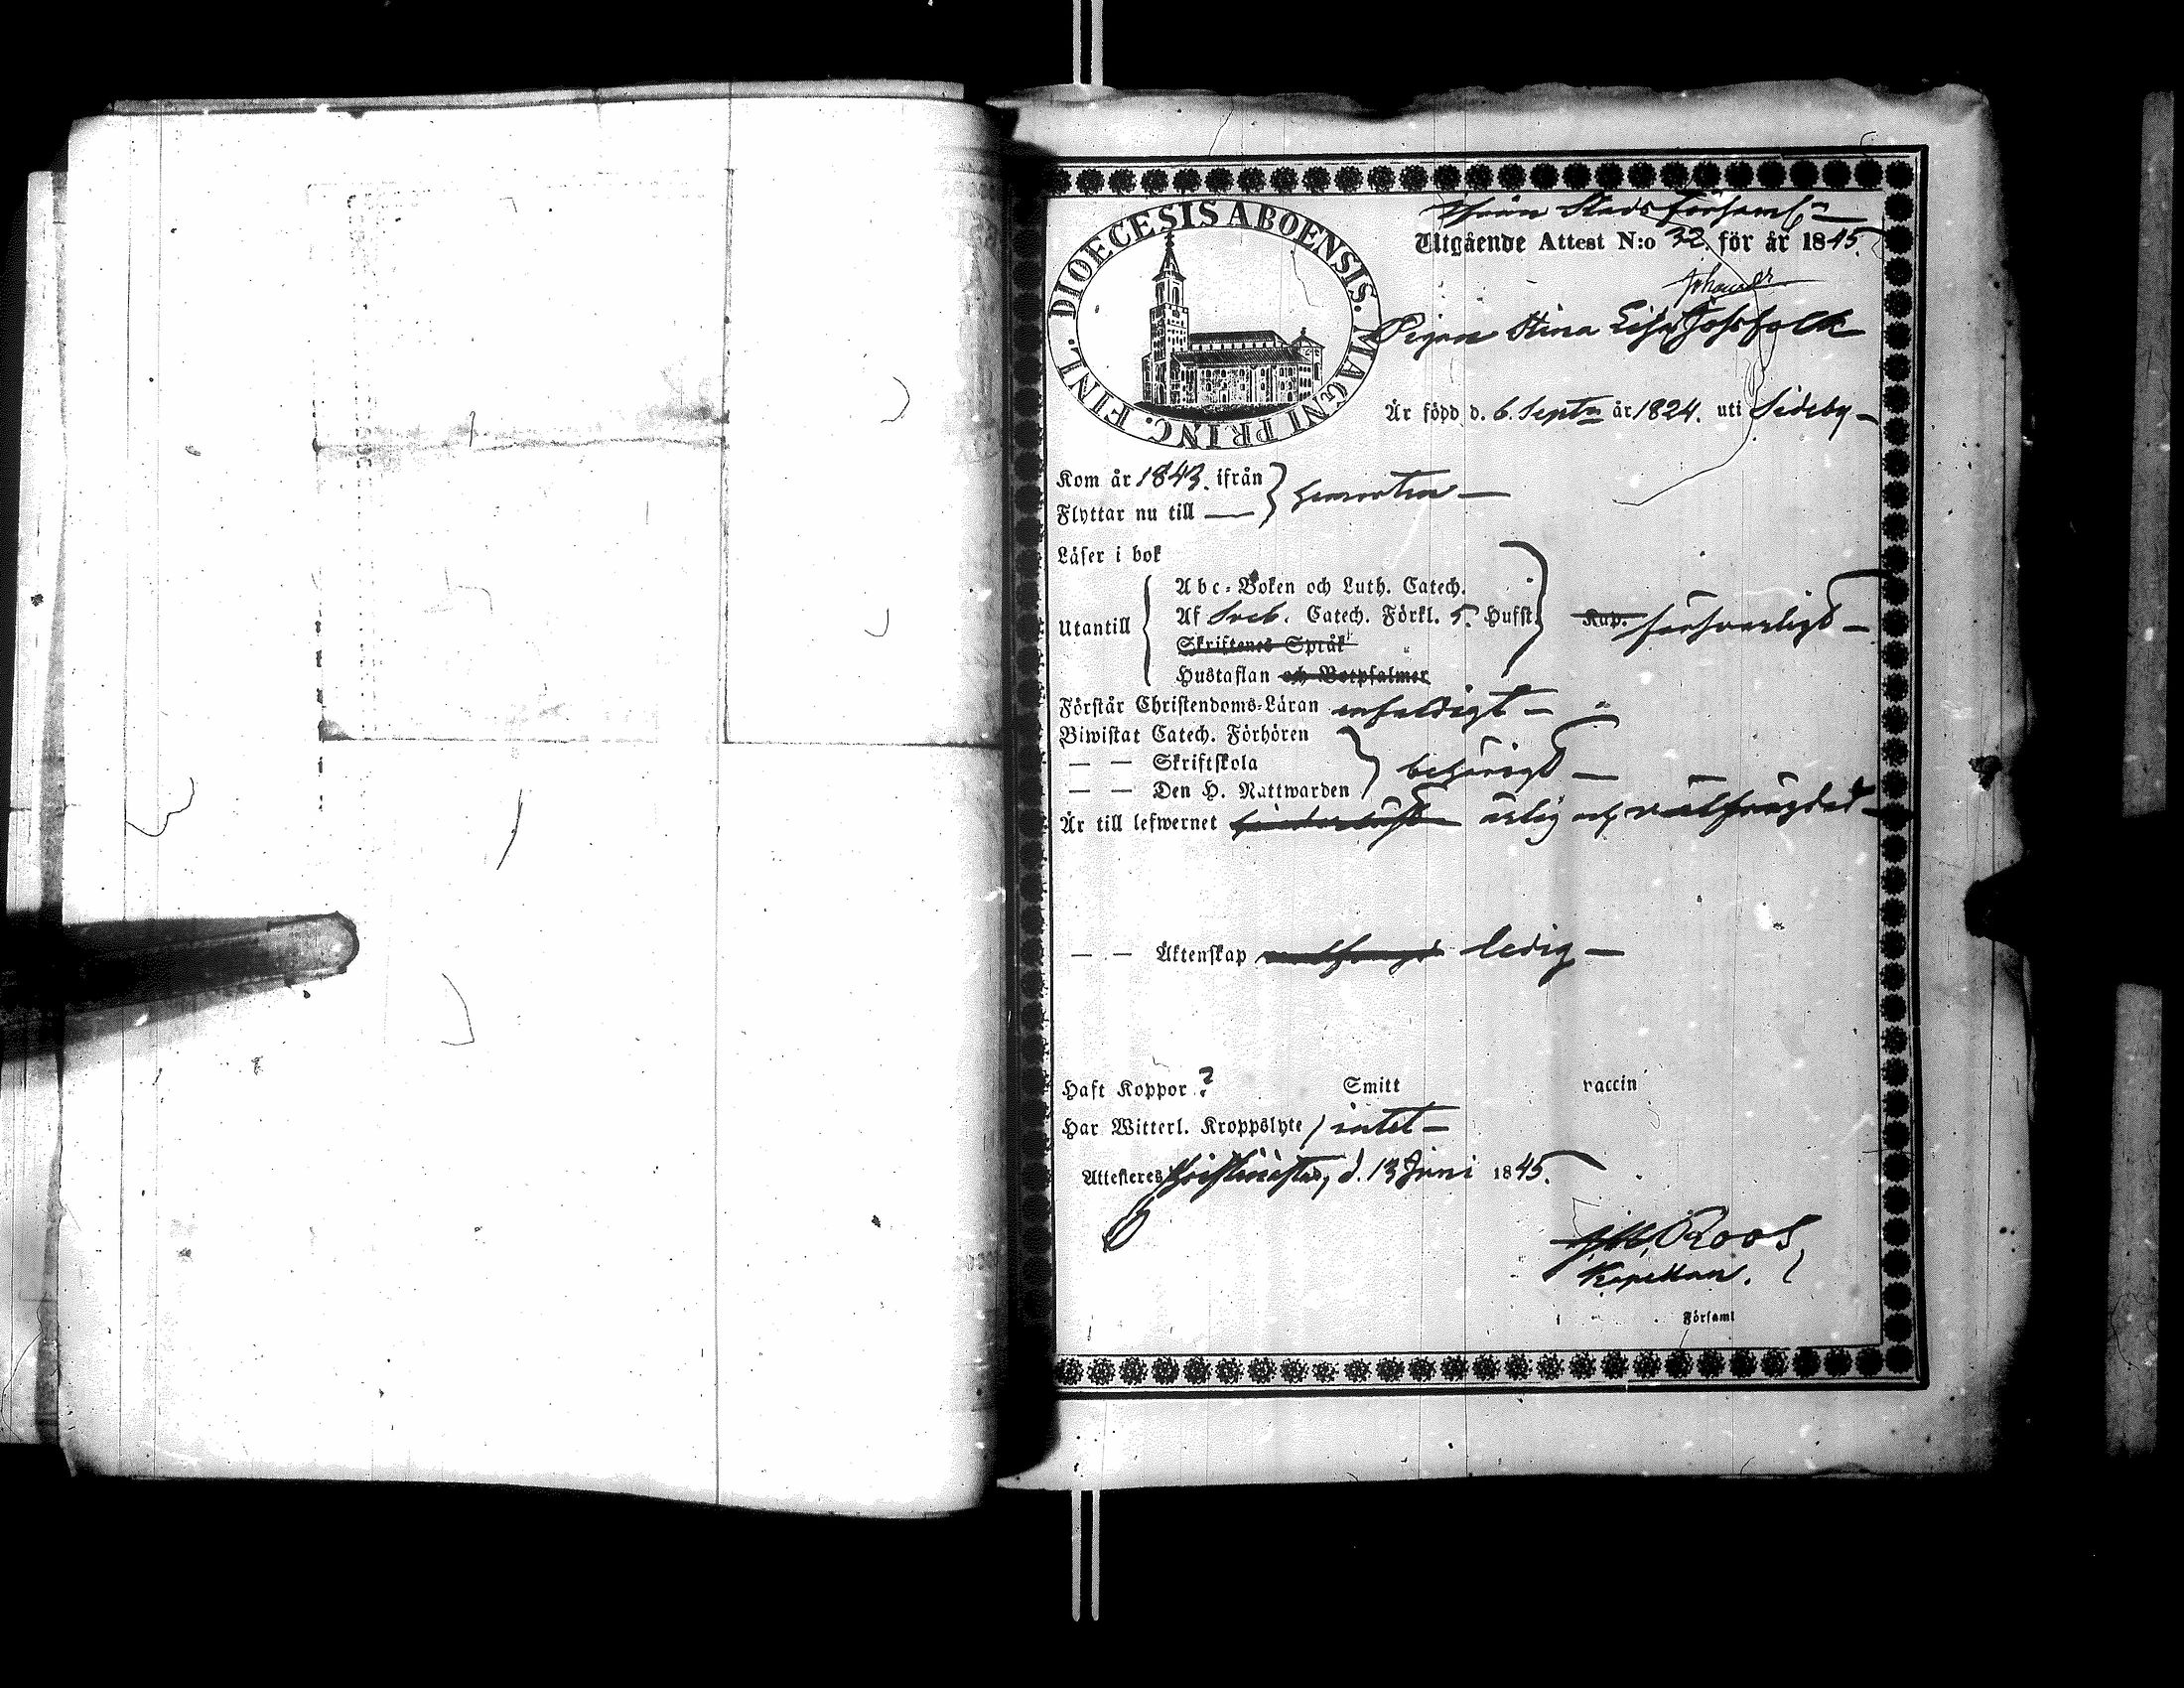 DIOECESIS ABOENSIS. MAGNI PRINC. FINL.
ifrån Stads Församl:n
Utgående Attest N:o 32 för år 1845.
Pigan Stina Lisa
Är född d. 6. Septr år 1824. uti Sideby
Kom år 1843. ifrån
Flyttar nu till — } hemorten —
Läser i bok
Abc-Boken och Luth. Catech.
Utantill Af Sveb. Catech. Förkl. 5. Hufst. Kap. försvarligt —
Skriftenes Språk
Hustaflan och Botpsalmer
Förstår Christendoms-Läran enfaldigt —
Biwistat Catech. Förhören
— — Skriftskola behörigt —
— — Den H. Nattwarden
Är till lefwernet ärlig och välfrägdad —
— — Äktenskap ledig —
Haft Koppor ? Smitt vaccin
Har Witterl. Kroppslyte intet —
Attesteres Christinestad, d. 13 Juni 1845.
Roos,
Kapellan.
Församl